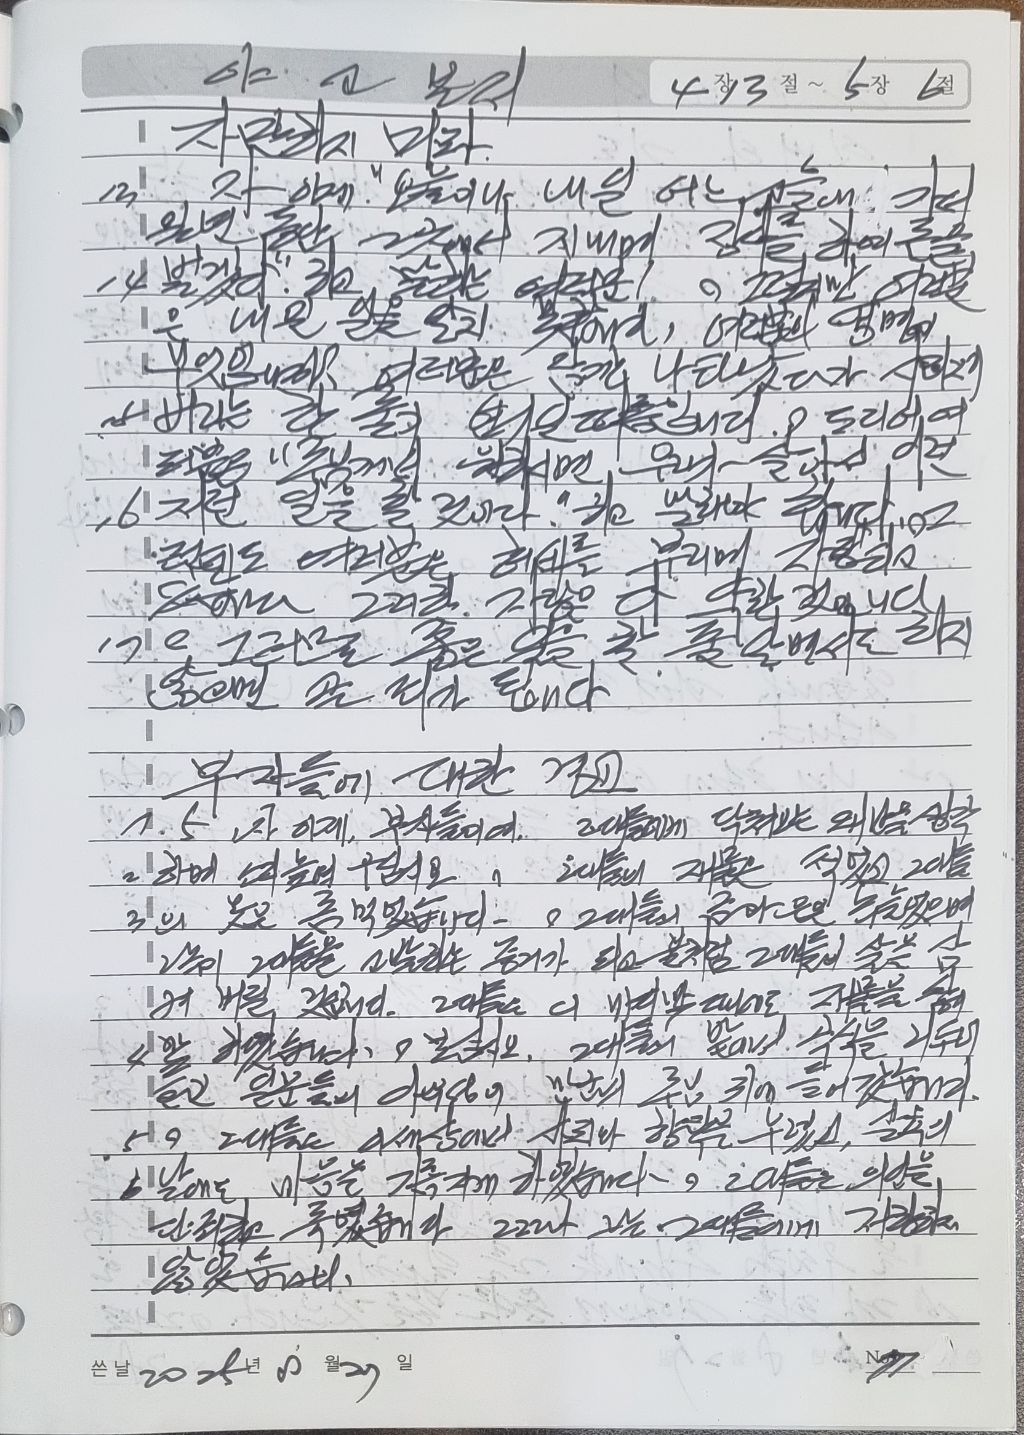 야고보서 4장 13절~ 5장 6절
자만하지 마라
13 자 이제 "오늘이나 내일 어느 고을에 가서
일년 동안 그곳에서 지내며 장사를 하여 돈을
14 벌겠다" 하고 말하는 여러분! 그렇지만 여러분
은 내일 일을 알지 못합니다. 여러분의 생명이
무엇입니까? 여러분은 잠깐 나타났다가 사라져
15 버리는 한 줄기 연기일 따름입니다. 도리어 여
러분은 "주님께서 원하시면 우리가 살아서 이런
16 저런 일을 할 것이다." 하고 말해야 합니다. 그
런데도 여러분은 허세를 부리며 자랑하고
있습니다 그러한 자랑은 다 악한 것입니다
17 그러므로 좋은 일을 할 줄 알면서도 하지
않으면 곧 죄가 됩니다
부자들에 대한 경고
1.5 자 이제, 부자들이여. 그대들에게 닥쳐오는 재난을 생각
2 하며 소리높여 우십시오 그대들의 재물은 썩었고 그대들
3 의 옷은 좀먹었습니다. 그대들의 금과 은은 녹슬었으며
그 녹이 그대들을 고발하는 증거가 되고 불처럼 그대들의 살을 삼
켜 버릴 것입니다. 그대들은 이 마지막 때에도 재물을 쌓기
4 만 하였습니다. 보십시오, 그대들의 밭에서 곡식을 거두어
들인 일꾼들의 아우성이 만군의 주님 귀에 들어갔습니다.
5 그대들은 이 세상에서 사치와 향락을 누렸고, 살육의
6 날에도 마음을 기름지게 하였습니다. 그대들은 의인을
단죄하고 죽였습니다 그러나 그는 그대들에게 저항하지
않았습니다.
쓴 날 2025년 8월 27일 No